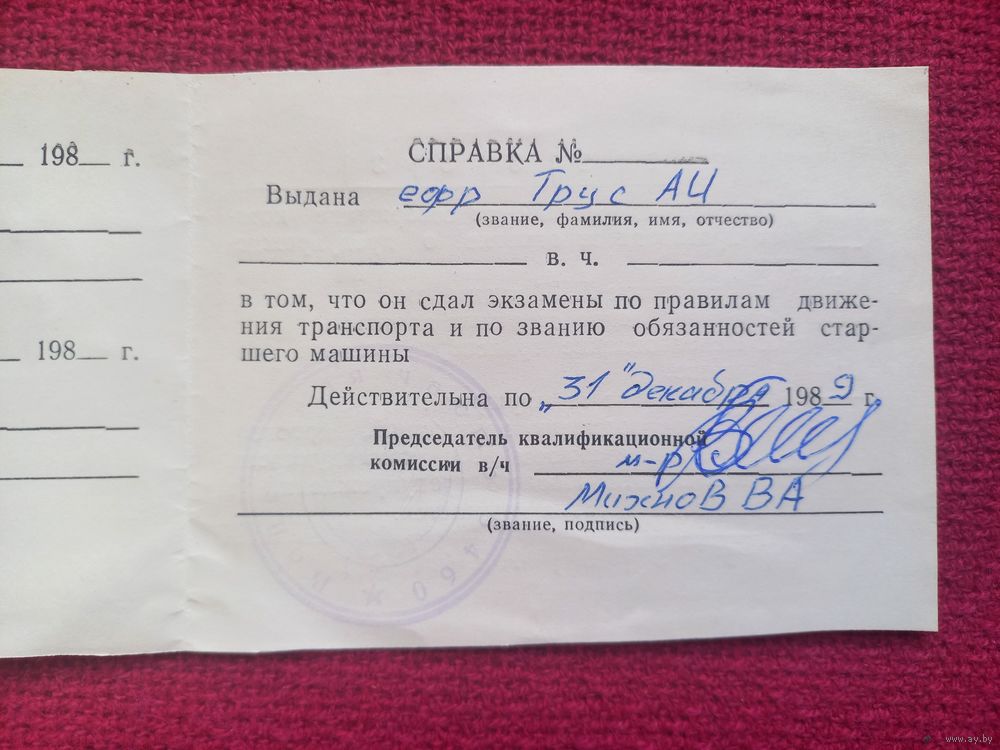 198 г.
198 г.
СПРАВКА №
Выдана ефр Трус АИ
(звание, фамилия, имя, отчество)
в. ч.
в том, что он сдал экзамены по правилам движе-
ния транспорта и по званию обязанностей стар-
шего машины
Действительна по „31" декабря 1989 г.
Председатель квалификационной
комиссии в/ч м-р
Михнов ВА
(звание, подпись)
www.ay.by